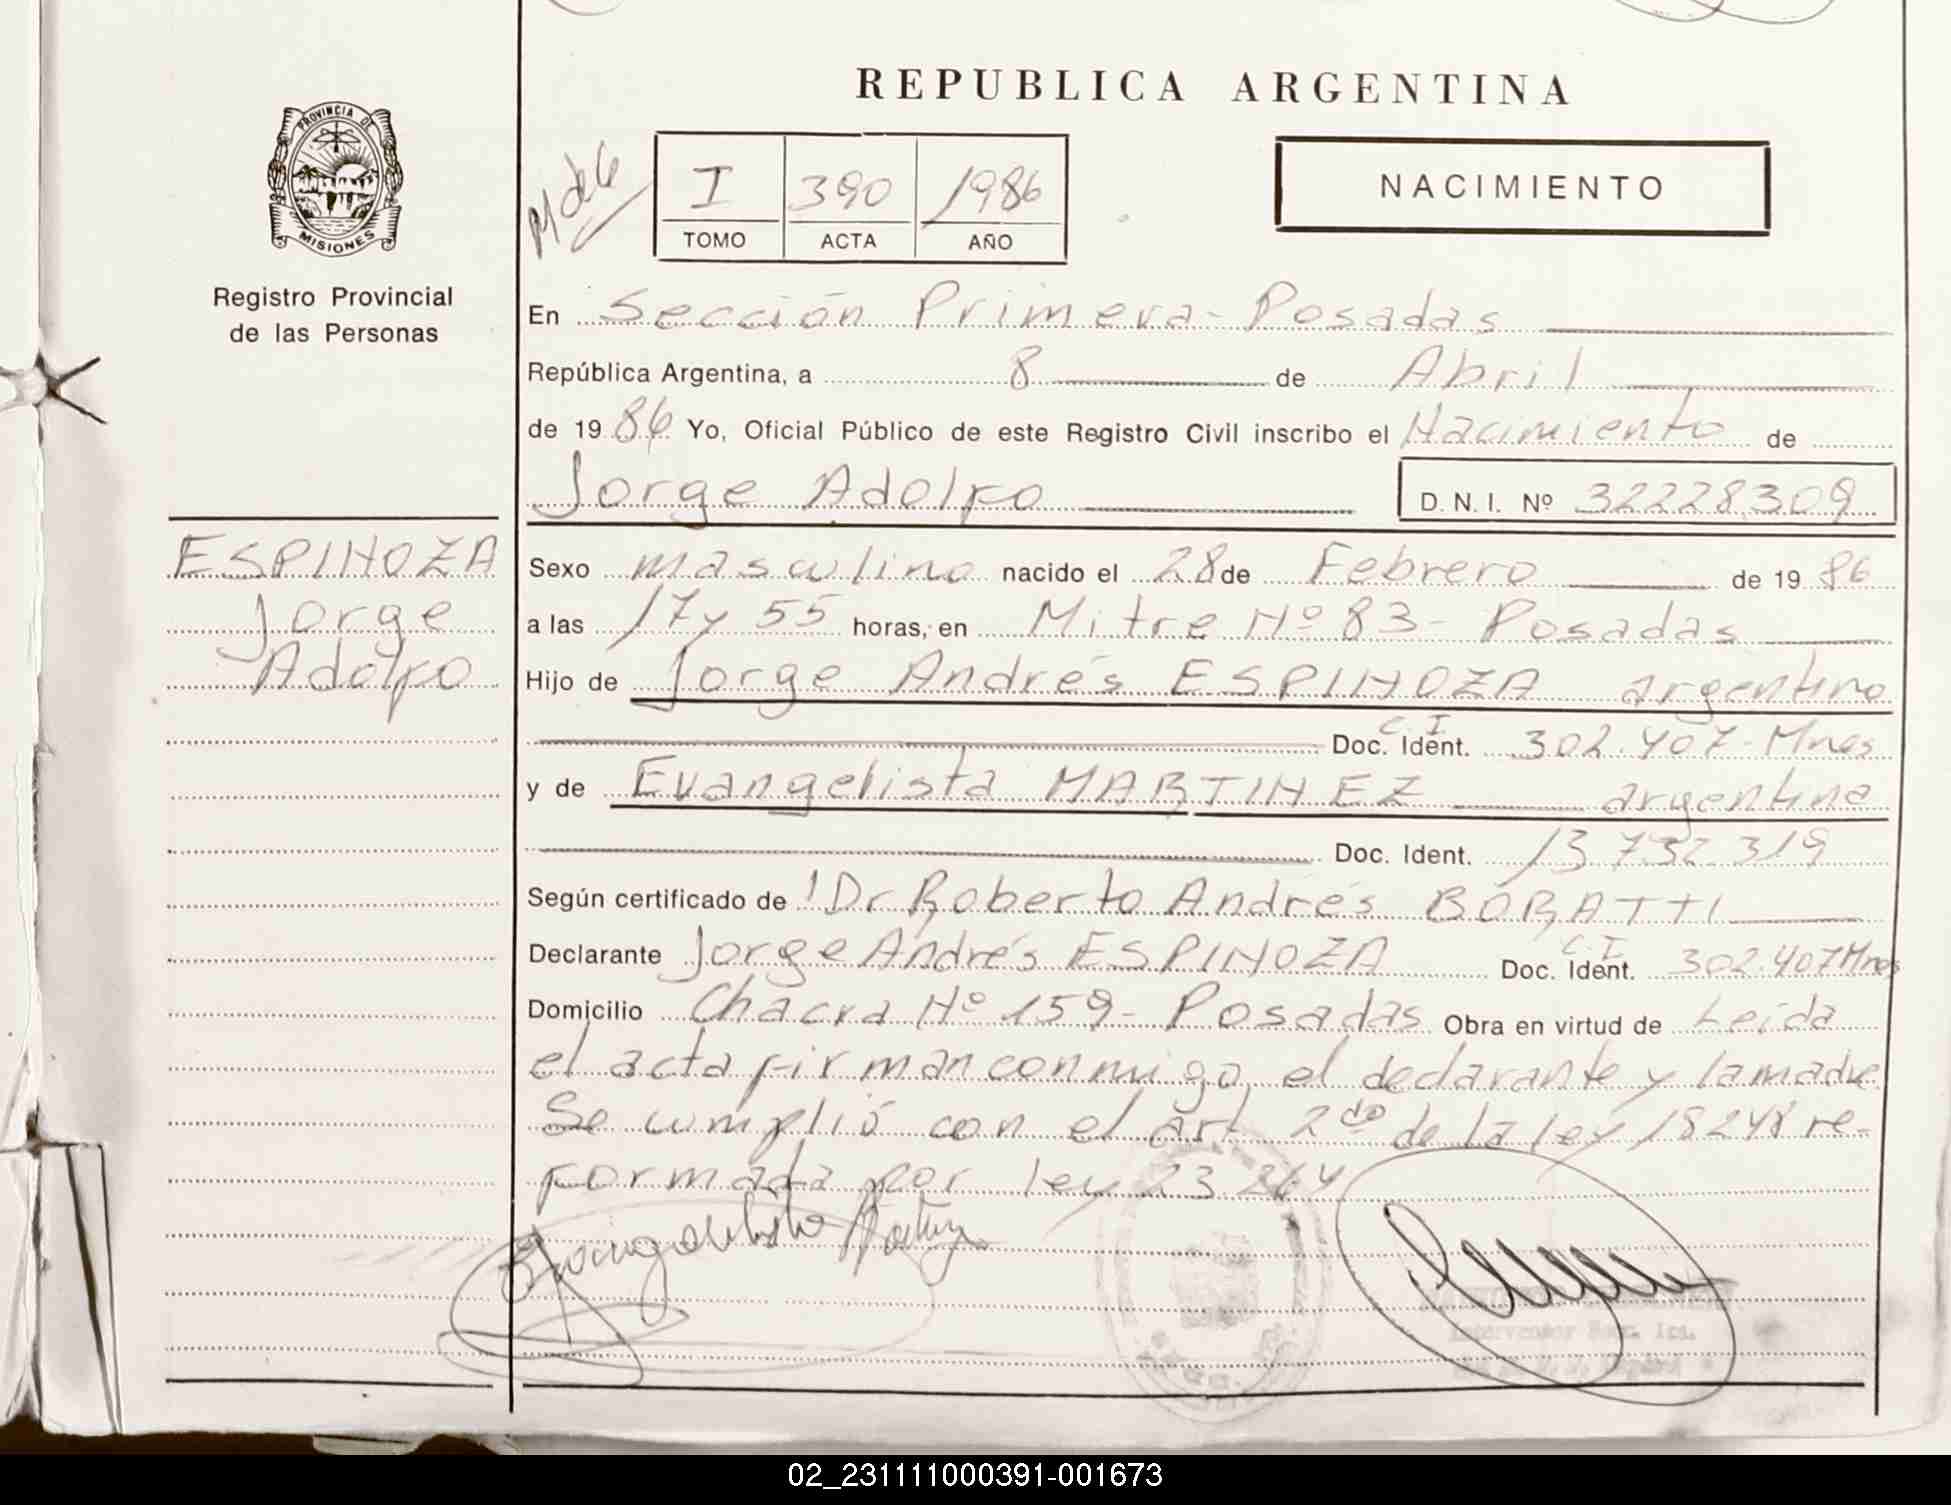 PROVINCIA DE
MISIONES
Registro Provincial
de las Personas
ESPINOZA
Jorge
Adolfo
REPUBLICA ARGENTINA
I 390 1986
TOMO ACTA AÑO
NACIMIENTO
En Sección Primera - Posadas
República Argentina, a 8 de Abril
de 1986 Yo, Oficial Público de este Registro Civil inscribo el Nacimiento de
Jorge Adolfo D. N. I. Nº 32228309
Sexo masculino nacido el 28 de Febrero de 1986
a las 17 y 55 horas, en Mitre Nº 83 - Posadas
Hijo de Jorge Andrés ESPINOZA argentino
C. I
Doc. Ident. 302.407 - Mnes
y de Evangelista MARTINEZ argentina
Doc. Ident. 13.732.319
Según certificado de Dr Roberto Andrés BORATTI
Declarante Jorge Andrés ESPINOZA C. I Doc. Ident. 302.407 Mnes
Domicilio Chacra Nº 159 - Posadas Obra en virtud de Leída
el acta firman conmigo, el declarante y la madre
Se cumplió con el art 2do de la ley 18248 re-
formada por ley 23.264
02_231111000391-001673